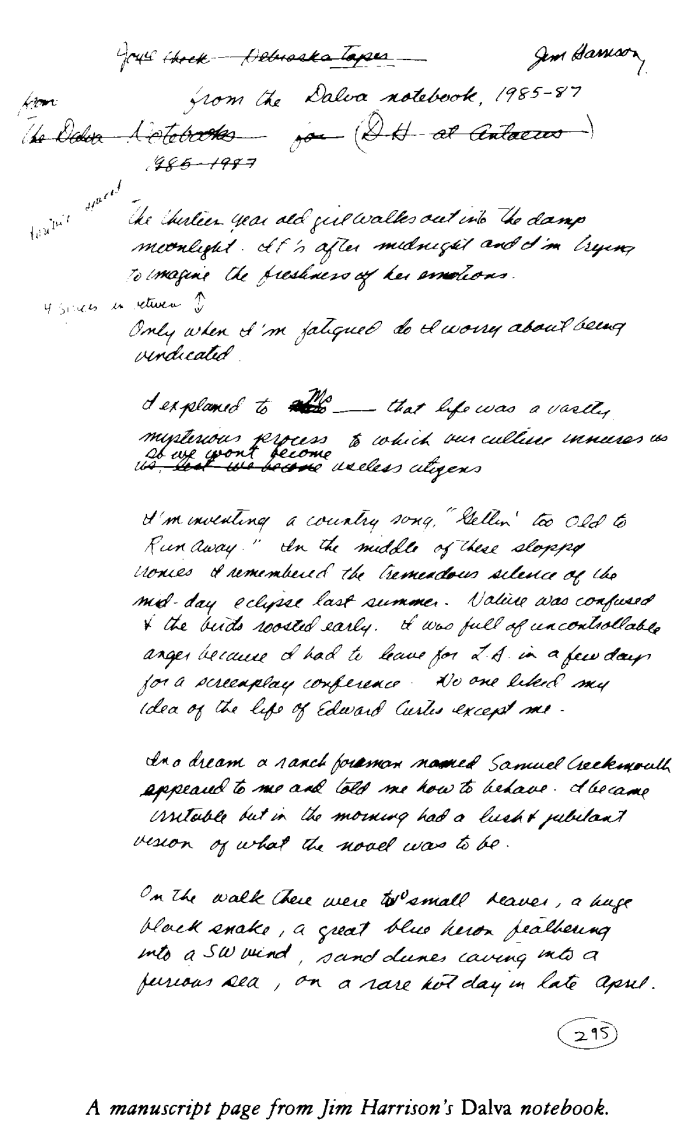 Nebraska Tapes
Jim Harrison
from
from the Dalva notebook, 1985-87
The Dalva Notebooks for (D.H. at Antaeus)
1985-1987
spaced
The thirteen year old girl walks out into the damp
moonlight. It's after midnight and I'm trying
to imagine the freshness of her emotions.
4 spaces in between ↕
Only when I'm fatigued do I worry about being
vindicated.
I explained to Ms —— that life was a vastly
mysterious process to which our culture innures us
so we won't become
us, lest we become useless citizens
I'm inventing a country song, "Gettin' too Old to
Run Away." In the middle of these sloppy
ironies I remembered the tremendous silence of the
mid-day eclipse last summer. Nature was confused
& the birds roosted early. I was full of uncontrollable
anger because I had to leave for L.A. in a few days
for a screenplay conference. No one liked my
idea of the life of Edward Curtis except me.
In a dream a ranch foreman named Samuel Creekmouth
appeared to me and told me how to behave. I became
irritable but in the morning had a lush & jubilant
vision of what the novel was to be.
On the walk there were two small beaver, a huge
black snake, a great blue heron feathering
into a SW wind, sand dunes caving into a
furious sea, on a rare hot day in late April.
295
A manuscript page from Jim Harrison's Dalva notebook.